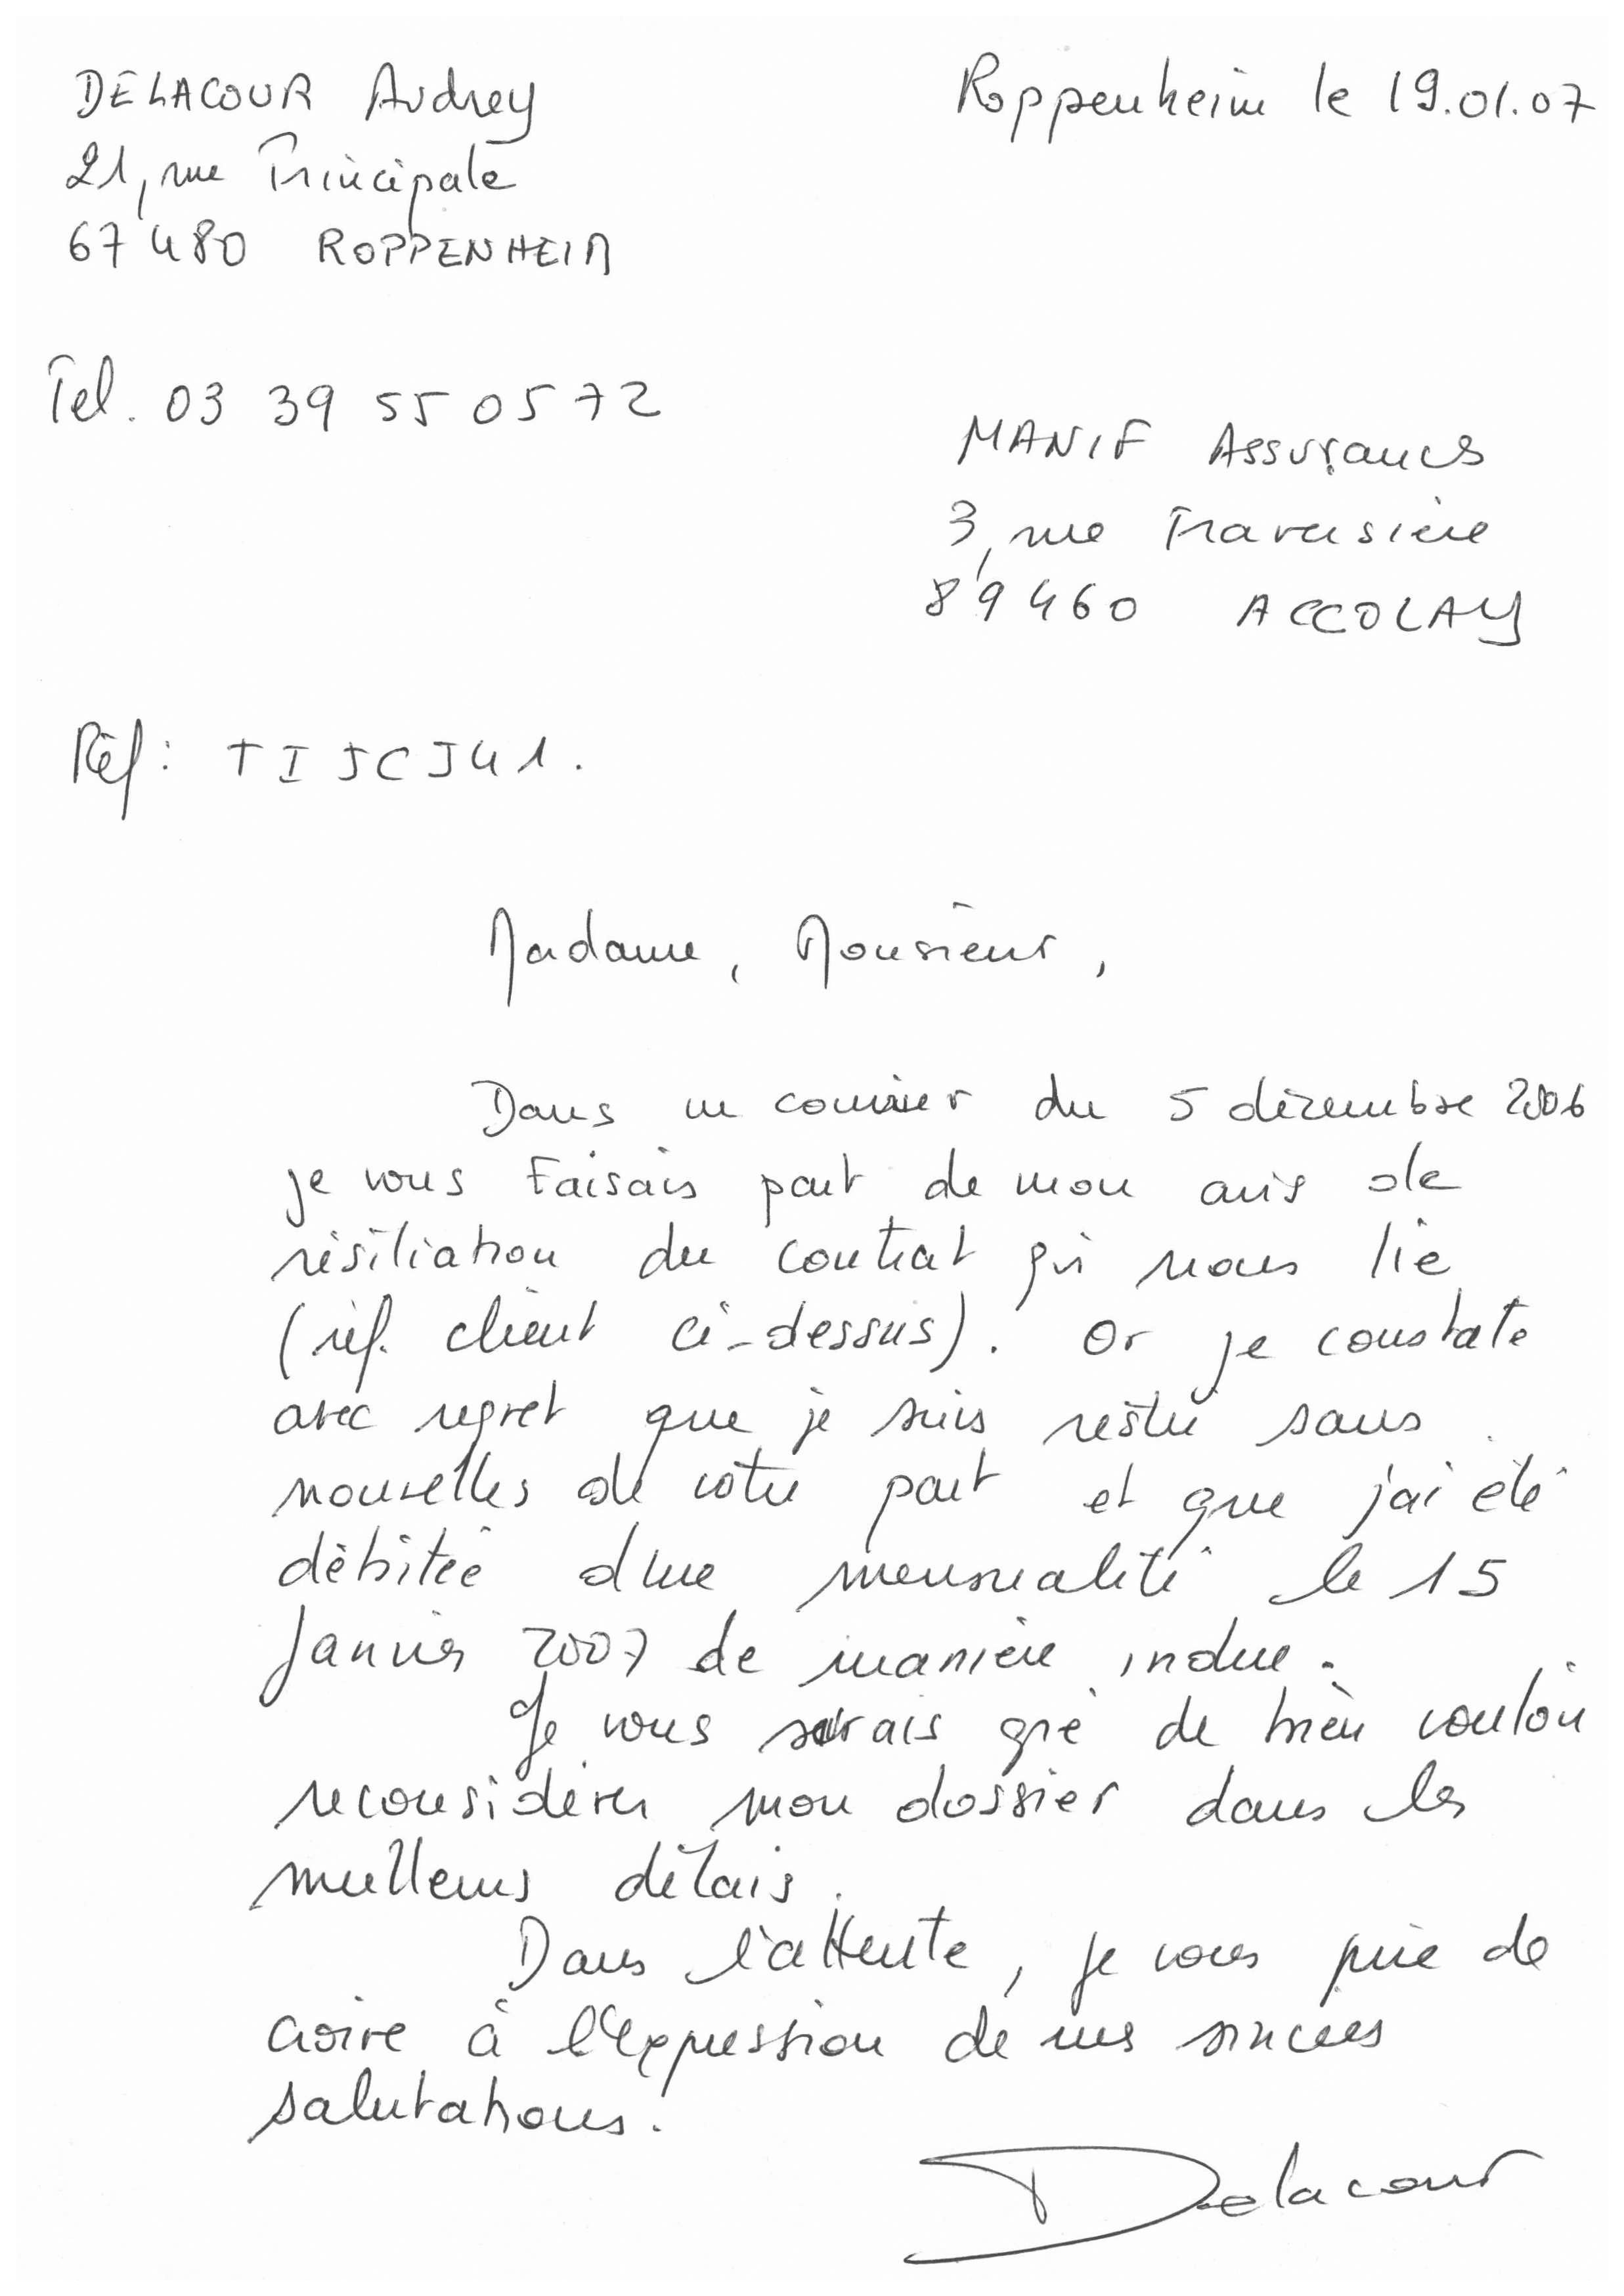 DELACOUR Audrey
Roppenheim le 19.01.07
21, rue Principale
67480 ROPPENHEIM
Tel. 03 39 55 05 72
MANIF Assurances
3, rue Traversière
89460 ACCOLAY
Réf: TISCJ41.
Madame, Monsieur,
Dans un courrier du 5 décembre 2006
je vous faisais part de mon avis de
résiliation du contrat qui nous lie
(réf. client ci-dessus). Or je constate
avec regret que je suis resté sans
nouvelles de votre part et que j'ai été
débitée d'une mensualité le 15
Janvier 2007 de manière indue.
Je vous saurais gré de bien vouloir
reconsidérer mon dossier dans les
meilleurs délais.
Dans l'attente, je vous prie de
croire à l'expression de mes sincères
salutations.
Delacour